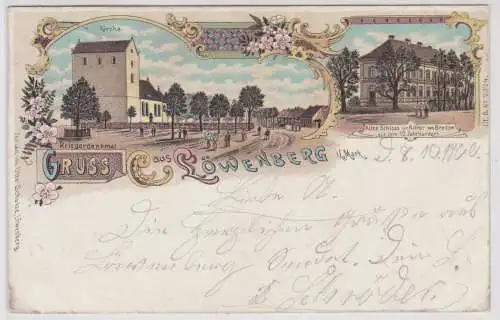 Kirche.
Kriegerdenkmal
Altes Schloss der Ritter von Bredow
aus dem 13. Jahrhundert.
GRUSS aus LÖWENBERG i/Mark.
D. 8. 10. 1900.
Liebe A.
Die herzlichsten Grüße aus
Löwenberg sendet Dein L.
Schröder.